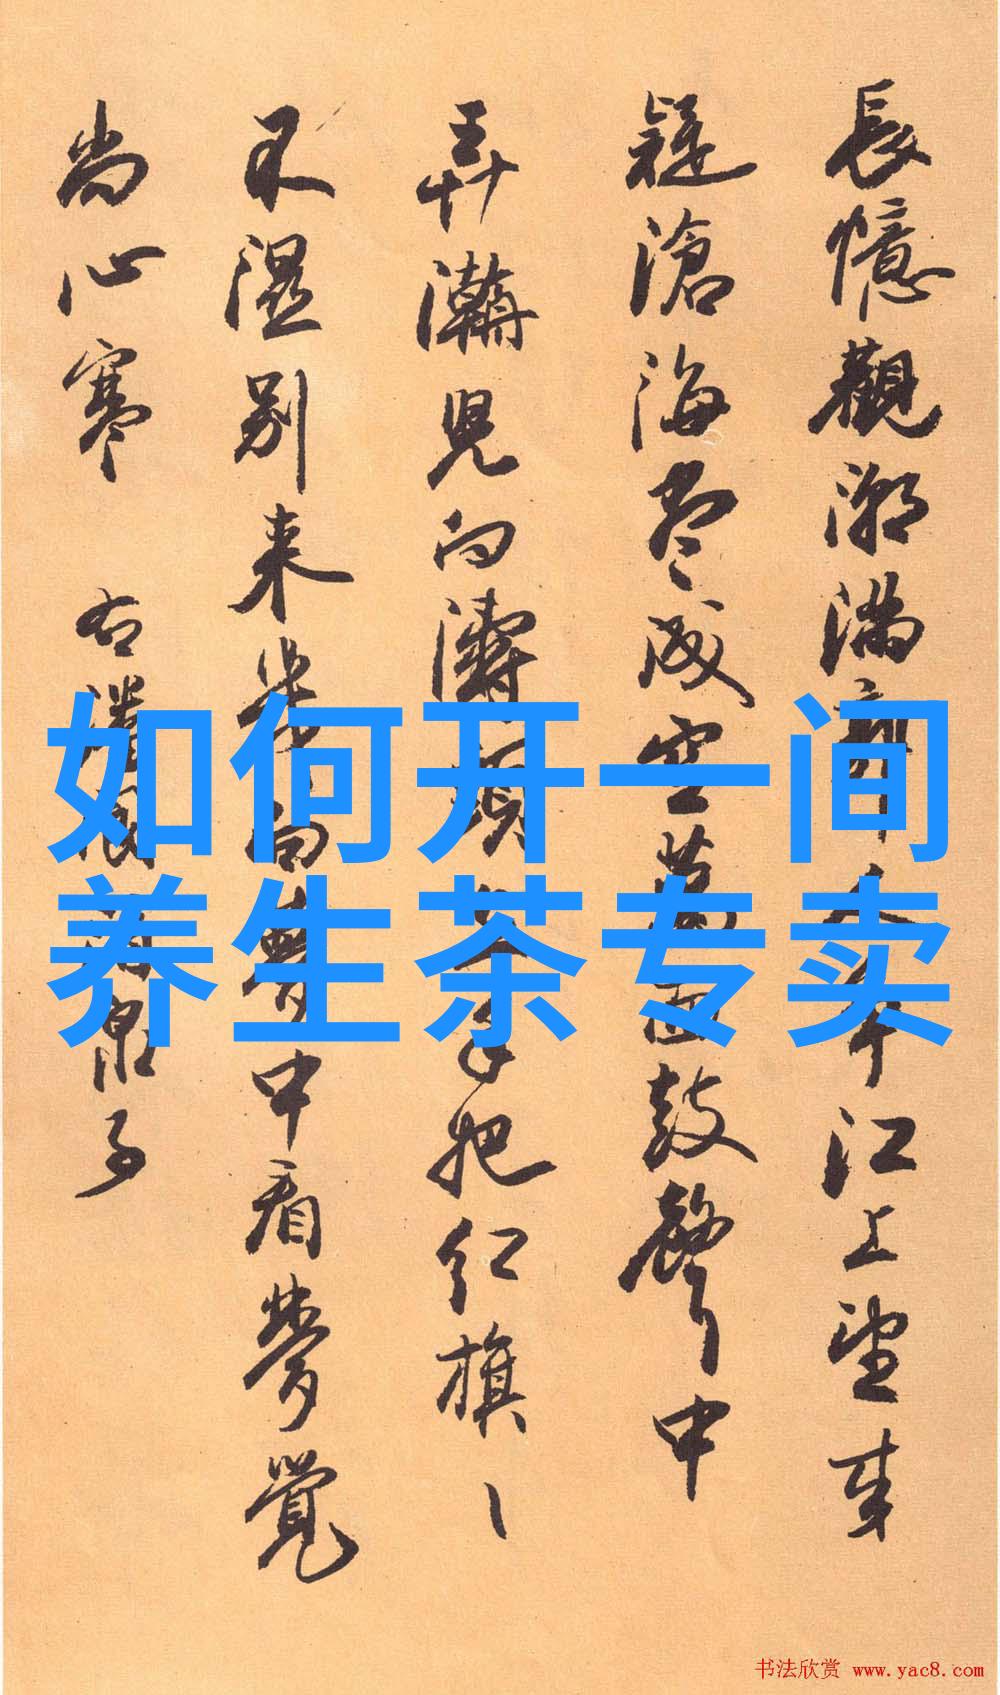 長憶觀潮滿郭人争江上望来
疑滄海尽成空萬面鼓聲中
弄潮兒向濤頭手把红旗〻
不濕别来幾向夢中看夢覺
尚心寒 右潘閬酒泉子
如何开一间
养生茶专卖
书法欣赏 www.yac8.com